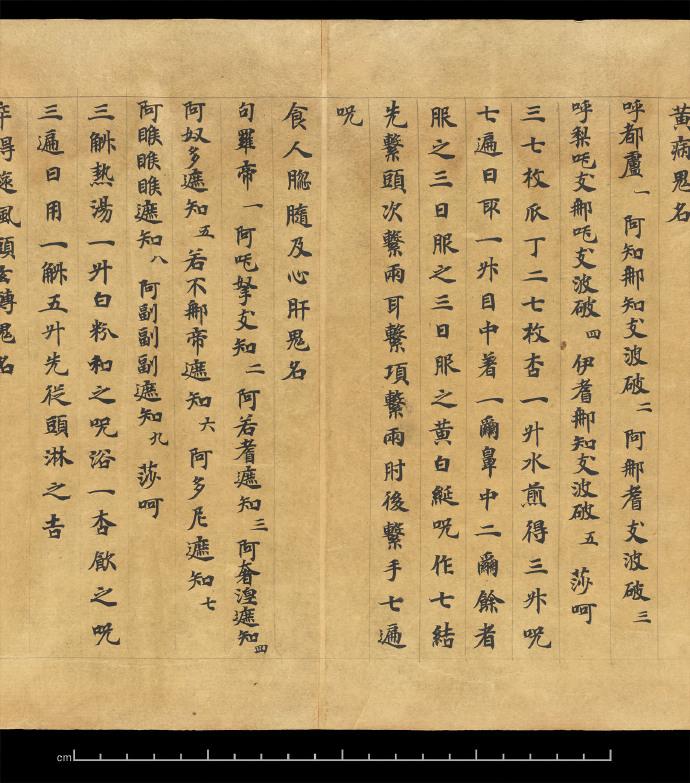 黄病鬼名
呼都盧一 阿知那知支波破二 阿那耆支波破三
呼梨吒支那吒支波破四 伊耆那知支波破五 莎呵
三七枚瓜丁二七枚杏一升水煎得三升呪
七遍日取一升目中著一兩鼻中二兩餘者
服之三日服之三日服之黄白綖呪作七結
先繫頭次繫兩耳繫項繫兩肘後繫手七遍
呪
食人𦛁髓及心肝鬼名
句羅帝一 阿吒拏支知二 阿若耆遮知三 阿奢湼遮知四
阿奴多遮知五 若不那帝遮知六 阿多尼遮知七
阿睺睺睺遮知八 阿副副副遮知九 莎呵
三斛熱湯一升白粉和之呪浴一杏飲之呪
三遍日用一斛五升先從頭淋之吉
得風頭鬼名